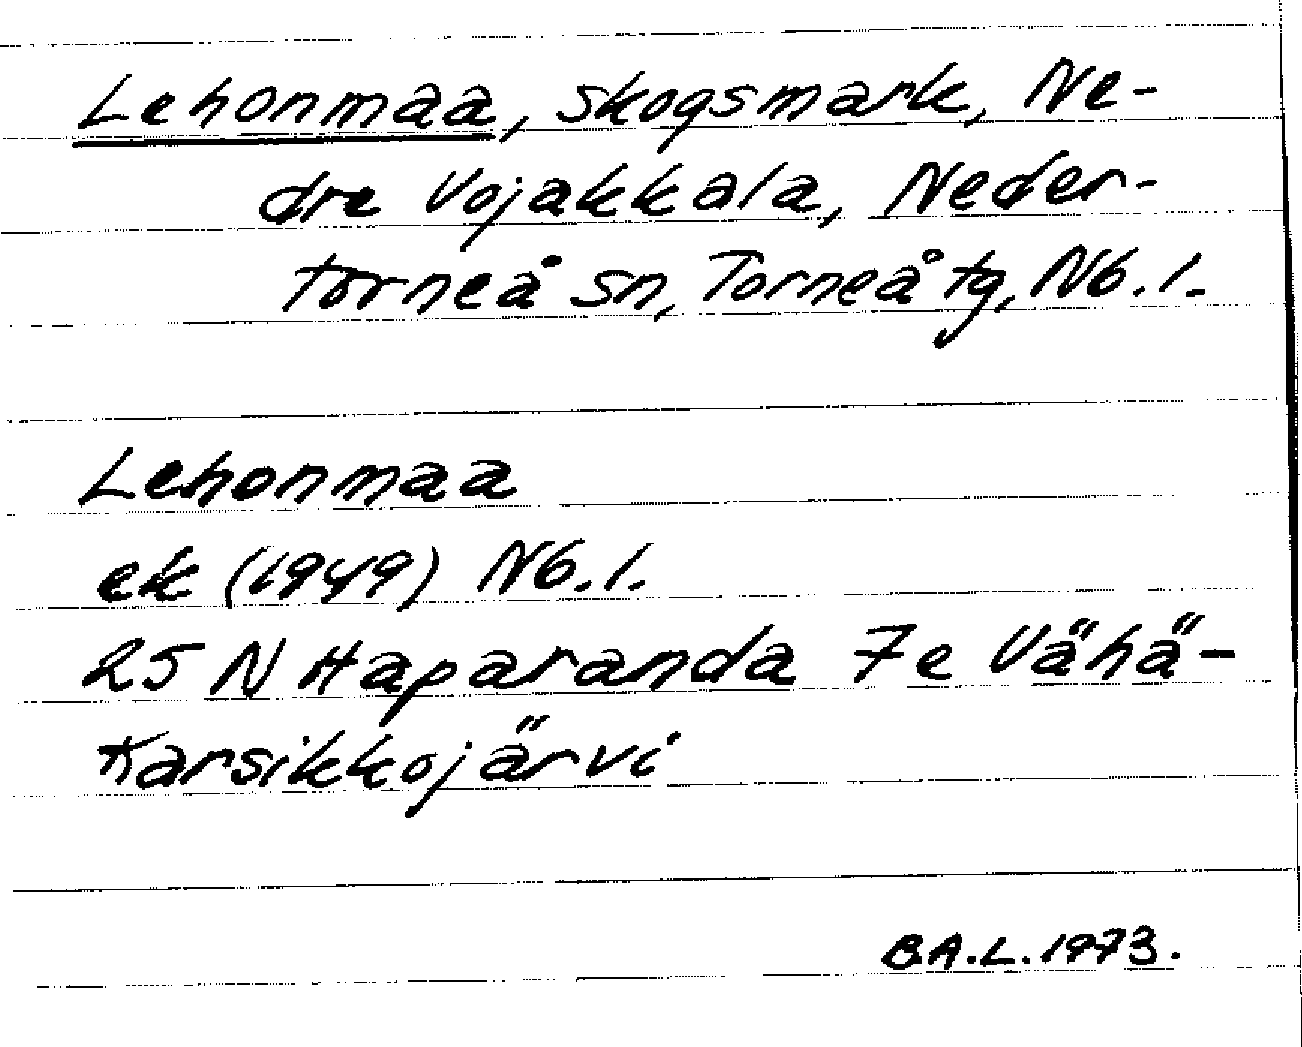 Lehonmaa, skogsmark, Ne-
dre Vojakkala, Neder-
torneå sn, Torneå tg, Nb.l.
Lehonmaa
ek (1949) Nb.l.
25 N Haparanda 7e Vähä-
Karsikkojärvi
B.A.L. 1973.